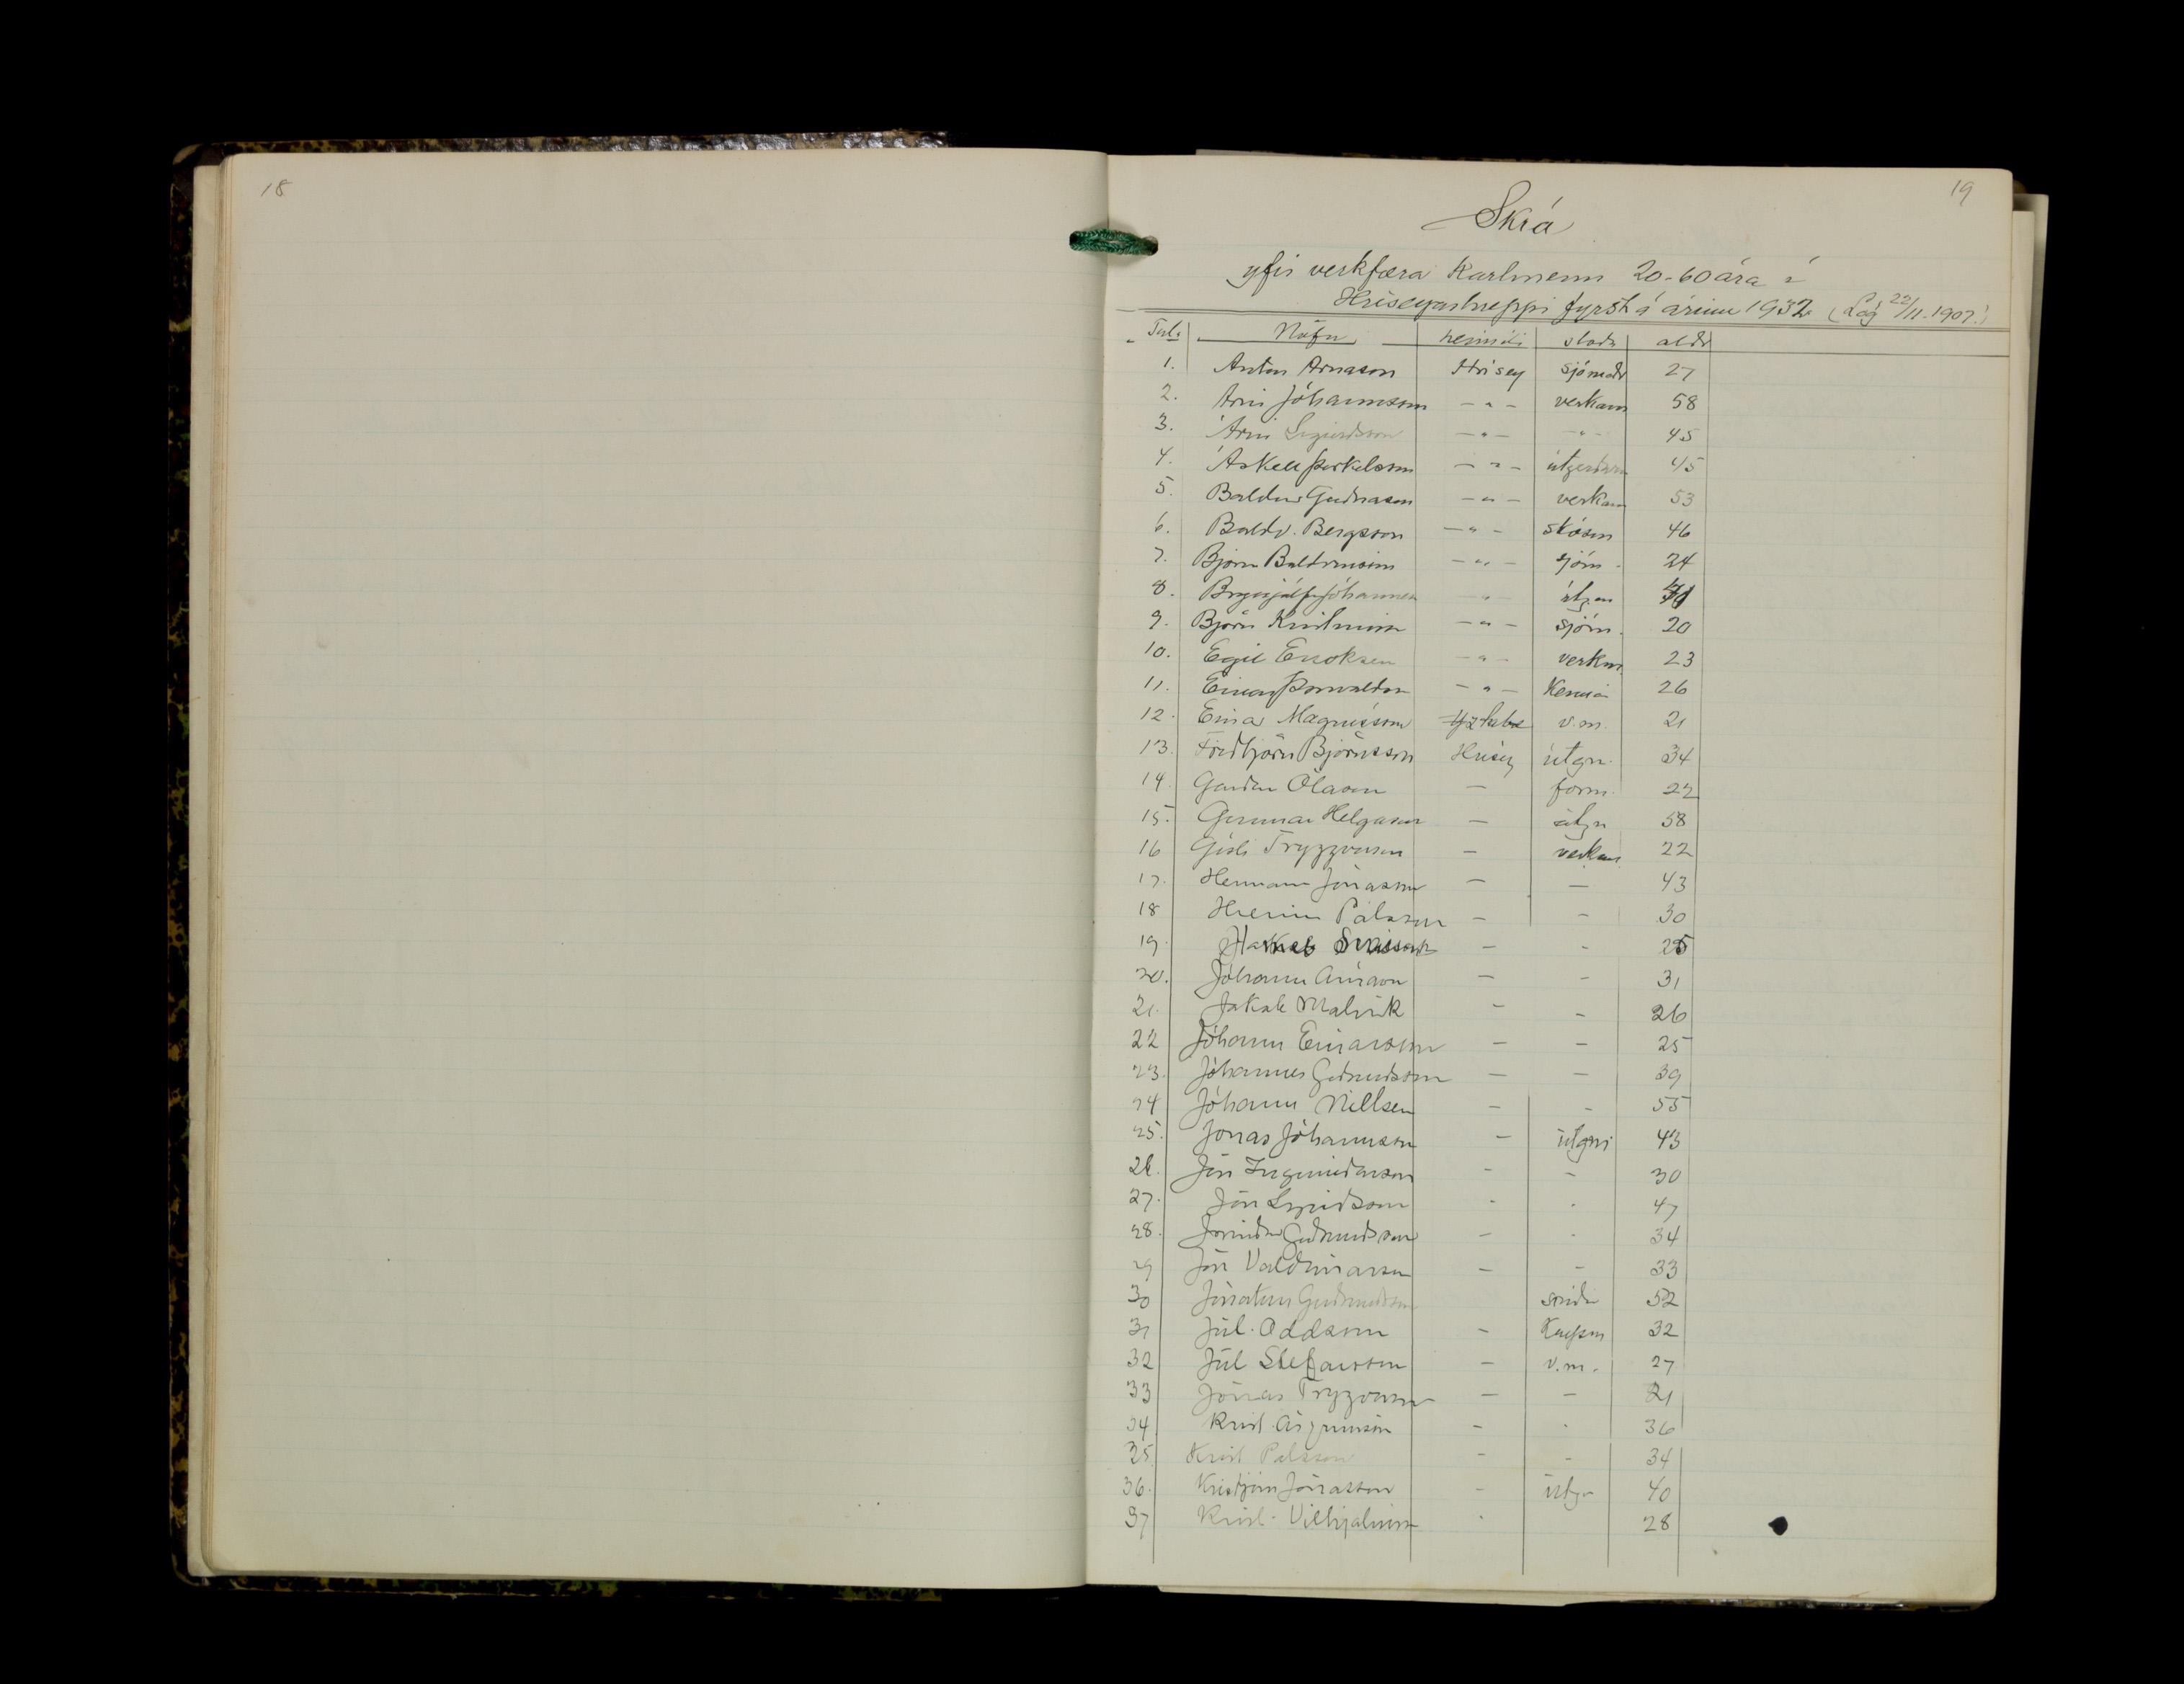 18
19
Skrá
yfir verkfæra karlmenn 20-60 ára í
Hríseyarhreppi fyrst á árinu 1932 (Lög 22/11. 1907.)
Tal: Nöfn heimili staða aldr
1. Anton Arnason Hrísey sjómaðr 27
2. Arni Jóhannsson -"- verkam 58
3. Árni Sigurdsson -"- -"- 45
4. Áskell Þorkelsson -"- útgerðarm 45
5. Baldur Guðnason -"- verkam 53
6. Baldv. Bergsson -"- skósm 46
7. Björn Baldvinsson -"- sjóm. 24
8. Brynjólfur Jóhannes -"- útgm
9. Björn Kristinsson -"- sjóm. 20
10. Egil -"- verkm. 23
11. Einar Þorvaldsson -"- Kennari 26
12. Einar Magnússon v.m. 21
13. Friðbjörn Björnsson Hrísey útgm. 34
14. Garðar Ólason - form. 22
15. Gunnar Helgason - útgm 58
16 Gísli Tryggvason - verkam 22
17. Hermann Jónasson - - 43
18 Hreinn Pálsson - - 30
19. - - 25
20. Jóhann Árnason - - 31
21. Jakob Malvik - - 26
22 Jóhann Einarsson - - 25
23. Jóhannes Guðmundsson - - 39
24 Jóhann Nillsen - - 55
25. Jónas Jóhannsson - útgm 43
26. Jón Ingimundarson - - 30
27. Jón Sigurdsson - - 47
28. Jörundur Guðmundsson - - 34
29 Jón Valdimarsson - - 33
30 Jónatan Guðmundsson smiður 52
31 Júl. Oddsson - Kaupm 32
32 Júl Stefánsson - v.m. 27
33 Jónas Tryggvason - - 21
34 Krist. Ásgrímsson - - 36
35. Krist Pálsson - - 34
36. Kristján Jónasson - útgm 40
37 Krist. Vilhjálmsson - 28